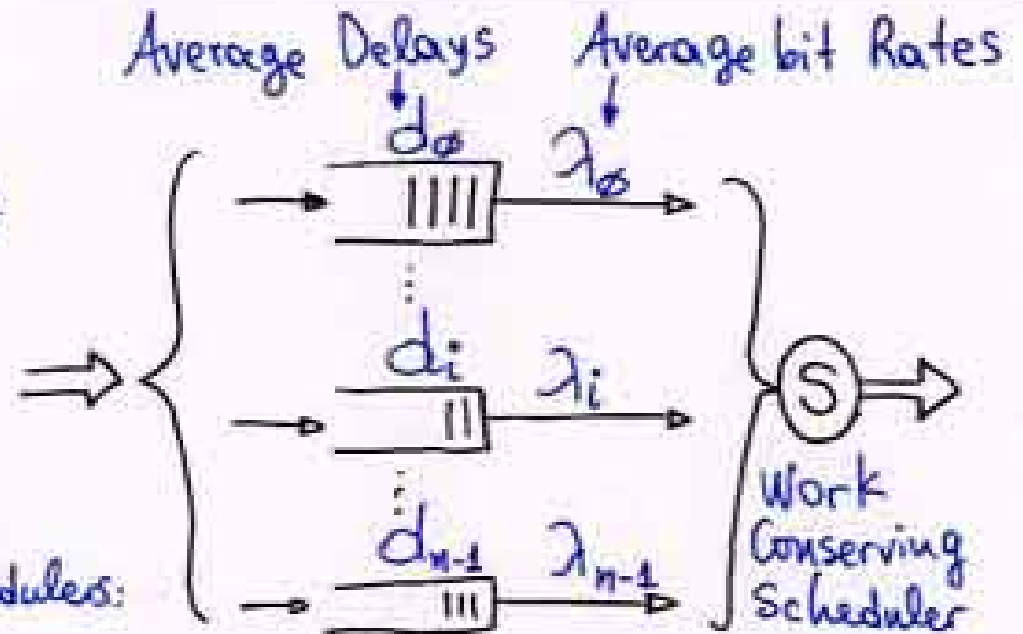 Average Delays Average bit Rates
d∅ λ∅
di λi
dn-1 λn-1
S
Work
Conserving
Scheduler
dulers: